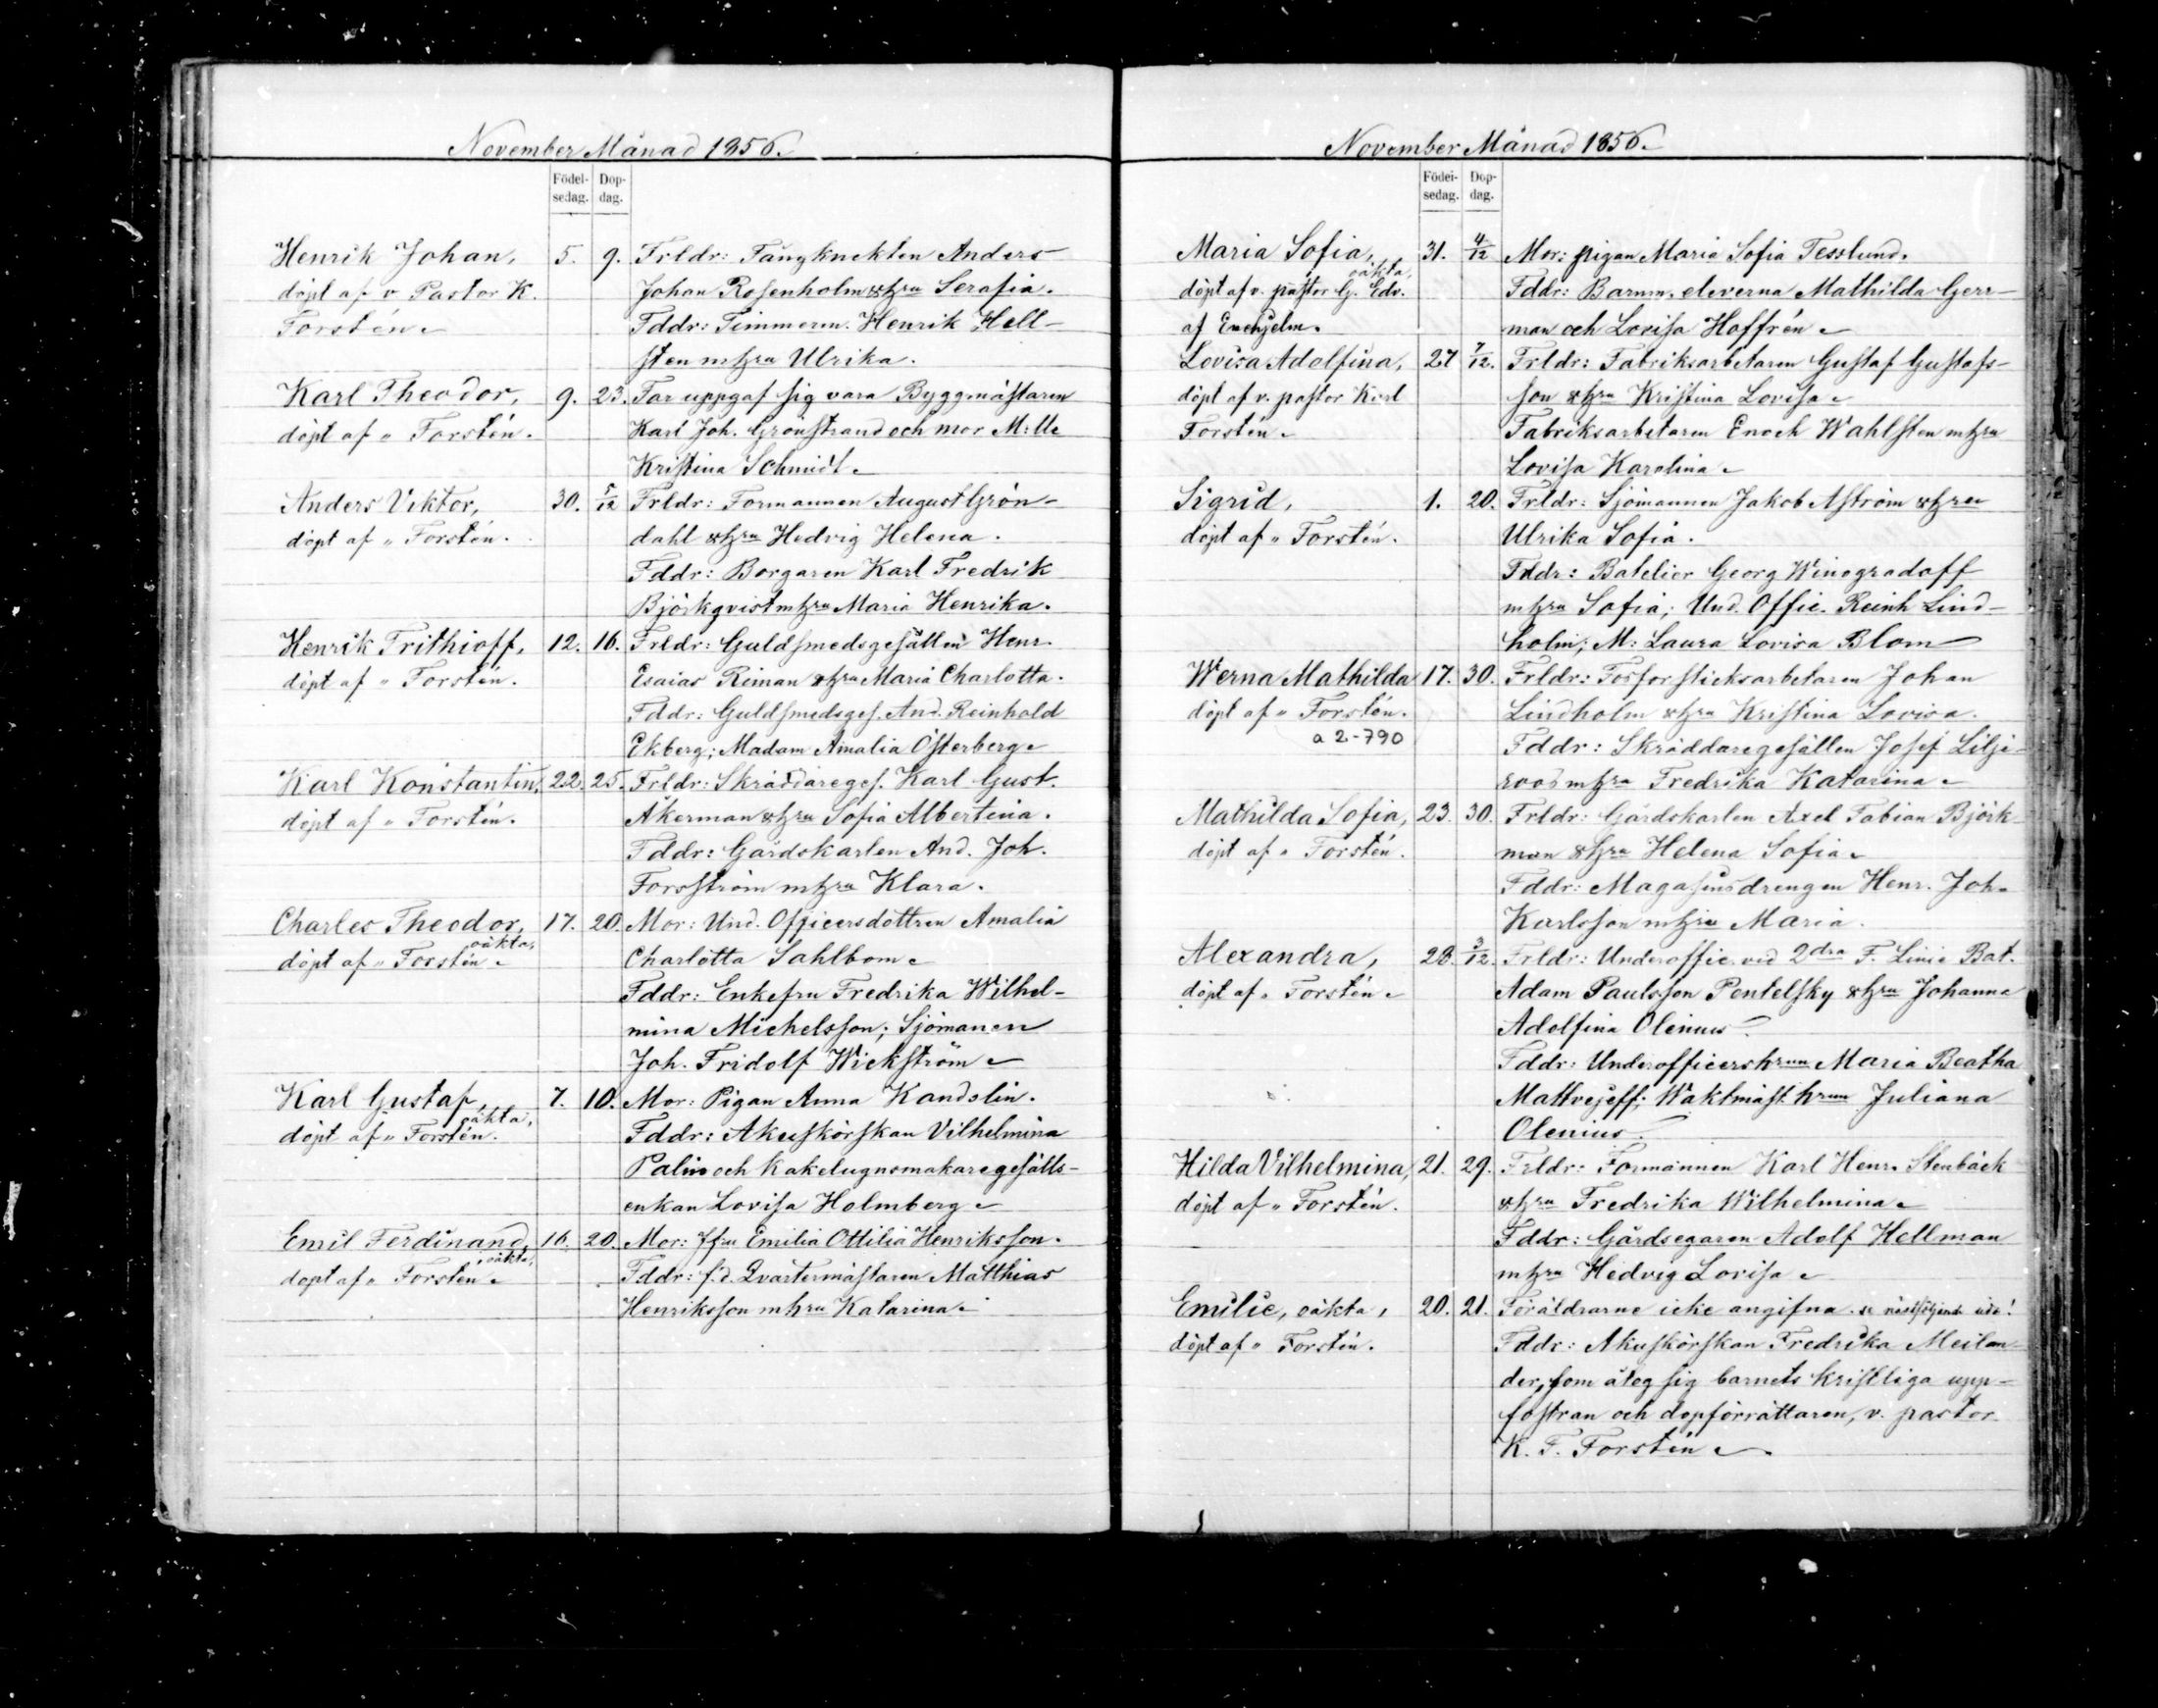 November Månad 1856.
Födel-
sedag.
Dop-
dag.
Henrik Johan, 5. 9. Frldr: Fångknekten Anders
döpt af v Pastor K. Johan Rosenholm o. h. hru Serafia.
Forstén. Fddr: Timmerm. Henrik Hell-
sten m. h. hru Ulrika.
Karl Theodor, 9. 23. Far uppgaf sig vara Byggmästaren
döpt af " Forstén. Karl Joh. Grönstrand och mor M:lle
Kristina Schmidt.
Anders Viktor, 30. 5/12 Frldr: Formannen August Grön-
döpt af " Forstén. dahl o. h. hru Hedvig Helena.
Fddr: Borgaren Karl Fredrik
Björkqvist m. h. hru Maria Henrika.
Henrik Frithioff, 12. 16. Frldr: Guldsmedsgesällen Henr.
döpt af " Forstén. Esaias Riman o. h. hru Maria Charlotta.
Fddr: Guldsmedsges. And. Reinhold
Ekberg; Madam Amalia Österberg.
Karl Konstantin, 22. 25. Frldr: Skräddareges. Karl Gust.
döpt af " Forstén. Åkerman o. h. hru Sofia Albertina.
Fddr: Gårdskarlen And. Joh.
Forsström m. h. hru Klara.
Charles Theodor, 17. 20. Mor: Und. Officersdottren Amalia
oäkta,
döpt af " Forstén. Charlotta Sahlbom.
Fddr: Enkefru Fredrika Wilhel-
mina Michelsson; Sjömanen
Joh. Fridolf Wickström.
Karl Gustaf, 7. 10. Mor: Pigan Anna Kandslin.
oäkta,
döpt af " Forstén. Fddr: Akuskörskan Vilhelmina
Palin och Kakelugnsmakaregesälls-
enkan Lovisa Holmberg.
Emil Ferdinand, 16. 20. Mor: Emilia Ottilia Henriksson.
oäkta,
döpt af " Forstén. Fddr: f. d. Qvartermästaren Matthias
Henriksson m. h. hru Katarina.
November Månad 1856.
Födel-
sedag.
Dop-
dag.
Maria Sofia, 31. 4/12 Mor: pigan Maria Sofia Tesslund.
oäkta,
döpt af v. pastor G. Edv. Fddr: Barnm. eleverna Mathilda Gerr-
af Enehjelm. man och Lovisa Hoffrén.
Lovisa Adolfina, 27 7/12. Frldr: Fabriksarbetaren Gustaf Gustafs-
döpt af v. pastor Karl son o. h. hru Kristina Lovisa.
Forstén. Fabriksarbetaren Enoch Wahlsten m. h. hru
Lovisa Karolina.
Sigrid, 1. 20. Frldr: Sjömannen Jakob Åström o. h. hru
döpt af " Forstén. Ulrika Sofia.
Fddr: Batelier Georg Winogradoff
m. h. hru Sofia; Und. Offic. Reinh Lind-
holm; M: Laura Lovisa Blom
Werna Mathilda 17. 30. Frldr: Fosforsticksarbetaren Johan
döpt af " Forstén. Lindholm o. h. hru Kristina Lovisa.
a 2-790 Fddr: Skräddaregesällen Josef Lilje-
roos m. h. hru Fredrika Katarina.
Mathilda Sofia, 23. 30. Frldr: Gårdskarlen Axel Fabian Björk-
döpt af " Forstén. man o. h. hru Helena Sofia.
Fddr: Magasinsdrengen Henr. Joh.
Karlsson m. h. hru Maria.
Alexandra, 28. 3/12. Frldr: Underoffic. vid 2dra F. Linie Bat.
döpt af " Forstén. Adam Paulsson Pentelsky o. h. hru Johanna
Adolfina Olenius.
Fddr: Underofficershrun Maria Beatha
Mattvejeff; Waktmäst. hrun Juliana
Olenius.
Hilda Vilhelmina, 21. 29. Frldr: Formannen Karl Henr. Stenbäck
döpt af " Forstén. o. h. hru Fredrika Wilhelmina.
Fddr: Gårdsegaren Adolf Hellman
m. h. hru Hedvig Lovisa.
Emilie, oäkta, 20. 21. Föräldrarne icke angifna. se nästföljande sida!
döpt af " Forstén. Fddr: Akuskörskan Fredrika Meilan-
der, som åtog sig barnets kristliga upp-
fostran och dopförrättaren, v. pastor
K. F. Forstén.